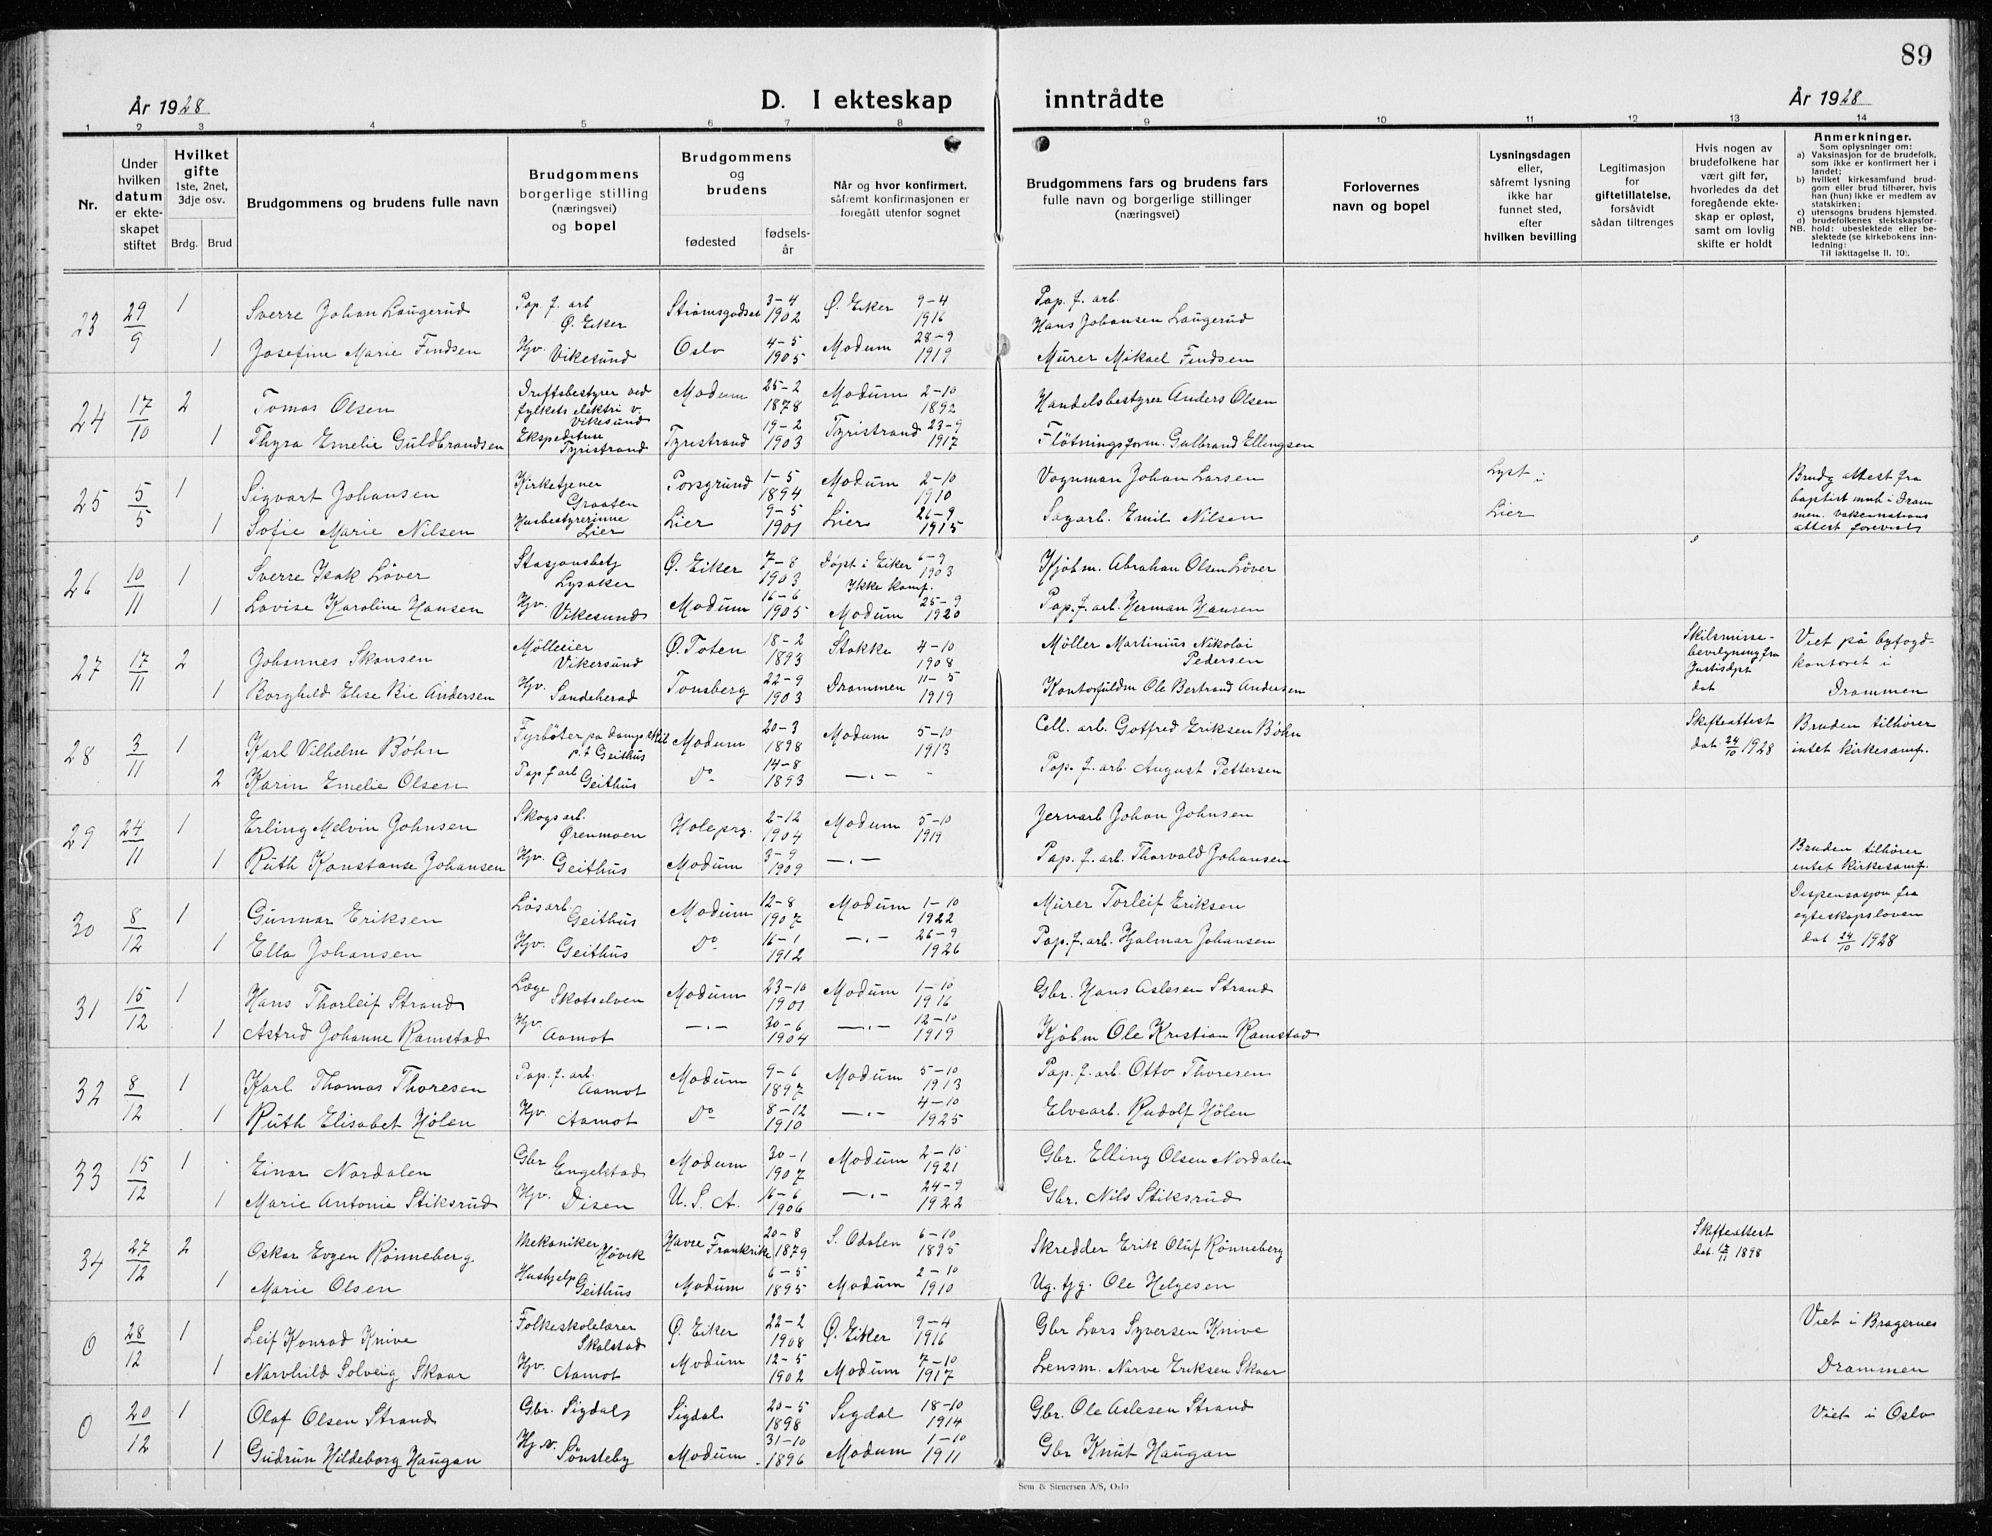 89
År 1928
D. I ekteskap inntrådte
År 1928
1 2 3 4 5 6 7 8 9 10 11 12 13 14
Nr.
Under hvilken datum er ekteskapet stiftet
Hvilket gifte 1ste, 2net, 3dje osv.
Brdg. Brud
Brudgommens og brudens fulle navn
Brudgommens borgerlige stilling (næringsvei) og bopel
Brudgommens og brudens
fødested
fødselsår
Når og hvor konfirmert, såfremt konfirmasjonen er foregått utenfor sognet
Brudgommens fars og brudens fars fulle navn og borgerlige stillinger (næringsvei)
Forlovernes navn og bopel
Lysningsdagen eller, såfremt lysning ikke har funnet sted, efter hvilken bevilling
Legitimasjon for giftetillatelse, forsåvidt sådan tiltrenges
Hvis nogen av brudefolkene har vært gift før, hvorledes da det foregående ekteskap er opløst, samt om lovlig skifte er holdt
Anmerkninger.
Som oplysninger om:
a) Vaksinasjon for de brudefolk, som ikke er konfirmert her i landet;
b) hvilket kirkesamfund brudgom eller brud tilhører, hvis han (hun) ikke er medlem av statskirken;
c) utensogns brudens hjemsted.
d) brudefolkenes slektskapsforhold: ubeslektede eller beslektede (se kirkebokens innledning:
NB. Til iakttagelse II. 10).
23 29/9 1 Sverre Johan Laugerud Pap. f. arb Ø. Eiker Strømsgodset 3-4 1902 Ø. Eiker 9-4 1916 Pap. f. arb. Hans Johansen Laugerud
1 Josefine Marie Findsen Hjv. Vikesund Oslo 4-5 1905 Modum 28-9 1919 Murer Mikael Findsen
24 17/10 2 Tomas Olsen Driftsbestyrer ved fylkets elektri v. Vikesund Modum 25-2 1878 Modum 2-10 1892 Handelsbestyrer Anders Olsen
1 Thyra Emelie Guldbrandsen Ekspeditrise Tyristrand Tyristrand 19-2 1903 Tyristrand 23-9 1917 Fløtningsform. Gulbrand Ellingsen
25 5/5 1 Sigvart Johansen Kirketjener Graaten Porsgrund 1-5 1894 Modum 2-10 1910 Vognman Johan Larsen Lyst i Brudg attest fra baptist mnh i Drammen.
1 Sofie Marie Nilsen Husbestyrerinne Lier Lier 9-5 1901 Lier 26-9 1915 Sagarb. Emil Nilsen Lier attest forevist
26 10/11 1 Sverre Isak Løver Stasjonsbetj Lysaker Ø. Eiker 7-8 1903 Døpt i Eiker 6-9 1903 Ikke konf. Kjøbm. Abrahan Olsen Løver
1 Lovise Karoline Hansen Hjv. Vikesund Modum 16-6 1905 Modum 25-9 1920 Pap. f. arb. Herman Hansen
27 17/11 2 Johannes Skansen Mølleeier Vikersund Ø. Toten 18-2 1893 Stokke 4-10 1908 Møller Martinius Nikolai Pedersen Skilsmissebevilgning fra Justisdept dat Viet på byfogdkontoret i Drammen
1 Borghild Elise Bie Andersen Hjv. Sandeherad Tønsberg 22-9 1903 Drammen 11-5 1919 Kontorfuldm Ole Bertrand Andersen
28 3/11 1 Karl Vilhelm Bøhn Fyrbøter pa dampskib p.t Geithus Modum 20-3 1898 Modum 5-10 1913 Cell. arb. Gotfred Eriksen Bøhn Skifteattest dat. 24/10 1928 Bruden tilhører intet kirkesamf.
2 Karin Emelie Olsen Pap f arb Geithus Do 14-8 1893 —.— " Pap. f. arb. August Pettersen
29 24/11 1 Erling Melvin Johnsen Skogsarb. Ørenmoen Holeprg. 2-12 1904 Modum 5-10 1919 Jernarb Johan Johnsen
1 Ruth Konstanse Johansen Hjv. Geithus Modum 3-9 1909 —.— Pap. f. arb. Thorvald Johansen Bruden tilhører intet kirkesamf.
30 8/12 1 Gunnar Eriksen Løsarb. Geithus Modum 12-8 1907 Modum 1-10 1922 Murer Torleif Eriksen Dispensasjon fra egteskapsloven dat 24/10 1928
1 Ella Johansen Hjv. Geithus Do 16-1 1912 —.— 26-9 1926 Pap. f. arb. Hjalmar Johansen
31 15/12 1 Hans Thorleif Strand Læge Skotselven Modum 23-10 1901 Modum 1-10 1916 Gbr. Hans Aslesen Strand
1 Astrid Johanne Ramstad Hjv. Aamot —.— 30-6 1904 —.— 12-10 1919 Kjøbm Ole Kristian Ramstad
32 8/12 1 Karl Thomas Thoresen Pap. f. arb. Aamot Modum 9-6 1897 Modum 5-10 1913 Pap. f. arb. Otto Thoresen
1 Ruth Elisabet Hølen Hjv Aamot Do 8-12 1910 —.— 4-10 1925 Elvearb. Rudolf Hølen
33 15/12 1 Einar Nordalen Gbr Engelstad Modum 30-1 1907 Modum 2-10 1921 Gbr. Elling Olsen Nordalen
1 Marie Antonie Stiksrud Hjv. Disen U. S. A. 16-6 1906 —.— 24-9 1922 Gbr. Nils Stiksrud
34 27/12 2 Oskar Evgen Rønneberg Mekaniker Høvik Havre Frankrik 20-8 1879 S. Odalen 6-10 1895 Skredder Erik Oluf Rønneberg Skifteattest dat. 17/11 1898
1 Marie Olsen Hushjelp Geithus Modum 6-5 1895 Modum 2-10 1910 Ug. fg. Ole Helgesen
0 28/12 1 Leif Konrad Knive Folkeskolelærer Skalstad Ø. Eiker 22-2 1908 Ø. Eiker 9-4 1916 Gbr Lars Syversen Knive Viet i Bragernes
1 Narvhild Solveig Skaar Hjv. Aamot Modum 12-5 1902 Modum 7-10 1917 Lensm. Narve Eriksen Skaar Drammen
0 20/12 1 Olaf Olsen Strand Gbr. Sigdal Sigdal 20-5 1898 Sigdal 18-10 1914 Gbr. Ole Aslesen Strand Viet i Oslo
1 Gudrun Hildeborg Haugan Hj.v. Sønsteby Modum 31-10 1896 Modum 1-10 1911 Gbr Knut Haugan
Sem & Stenersen A/S, Oslo